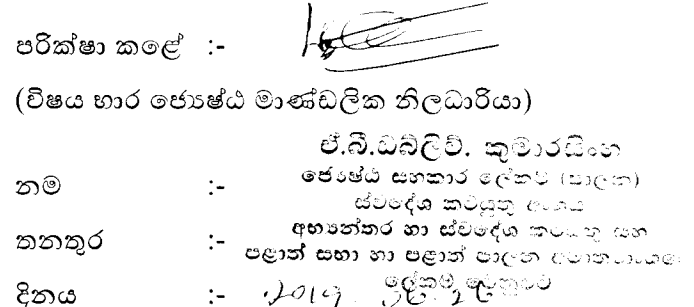 පරික්ෂා කළේ :-
(විෂය භාර ජ්‍යෙෂ්ඨ මාණ්ඩලික නිලධාරියා)
ඒ.බී.ඩබ්ලිව්. කුමාරසිංහ
නම :- ජ්‍යෙෂ්ඨ සහකාර ලේකම් (පාලන)
ස්වදේශ කටයුතු අංශය
තනතුර :- අභ්‍යන්තර හා ස්වදේශ කටයුතු සහ
පළාත් සභා හා පළාත් පාලන අමාත්‍යාංශයේ
ලේකම් වෙනුවට
දිනය :- 2019